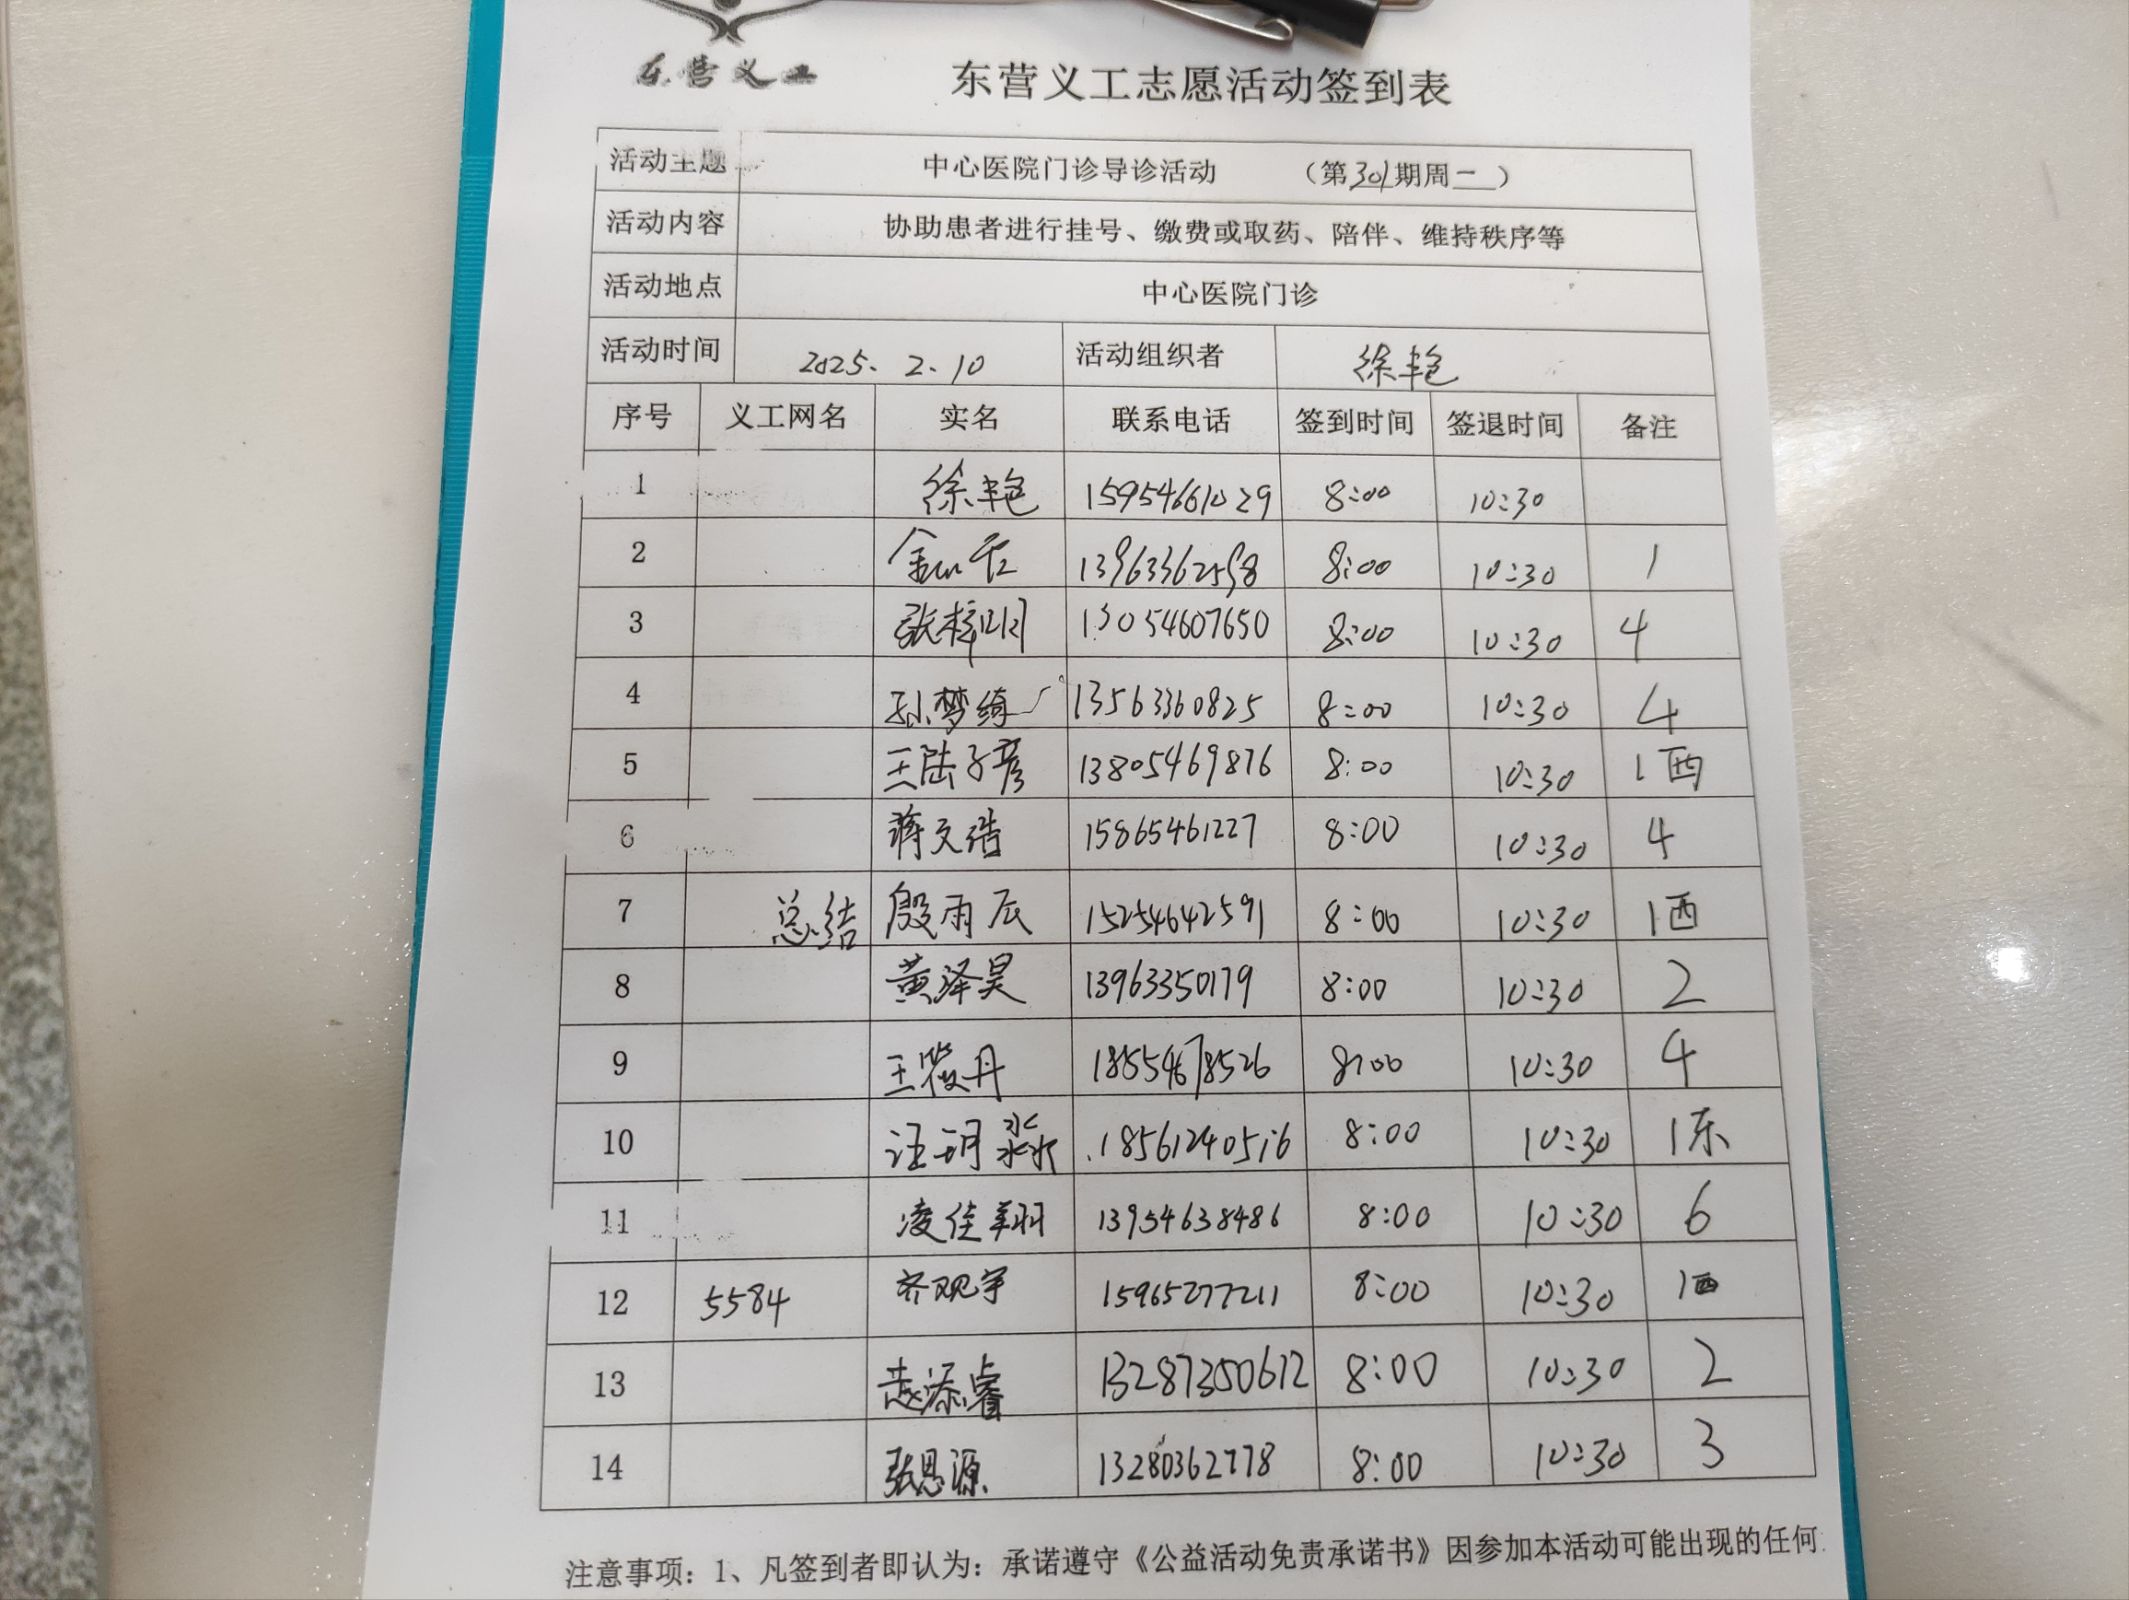 东营义工
东营义工志愿活动签到表
活动主题 中心医院门诊导诊活动 （第301期周一）
活动内容 协助患者进行挂号、缴费或取药、陪伴、维持秩序等
活动地点 中心医院门诊
活动时间 2025.2.10 活动组织者 徐艳
序号 义工网名 实名 联系电话 签到时间 签退时间 备注
1 徐艳 15954661029 8:00 10:30
2 13963362598 8:00 10:30 1
3 张梓明 13054607650 8:00 10:30 4
4 孙梦绮 13563360825 8:00 10:30 4
5 王陆子彦 13805469876 8:00 10:30 1西
6 蒋文浩 15865461227 8:00 10:30 4
7 总结 殷雨辰 15254642591 8:00 10:30 1西
8 黄泽昊 13963350179 8:00 10:30 2
9 王筱丹 18554678526 8:00 10:30 4
10 汪玥淼 18561240516 8:00 10:30 1东
11 凌佳翔 13954638486 8:00 10:30 6
12 5584 齐观宇 15965277211 8:00 10:30 1西
13 赵添睿 13287350612 8:00 10:30 2
14 张恩源 13280362778 8:00 10:30 3
注意事项：1、凡签到者即认为：承诺遵守《公益活动免责承诺书》因参加本活动可能出现的任何